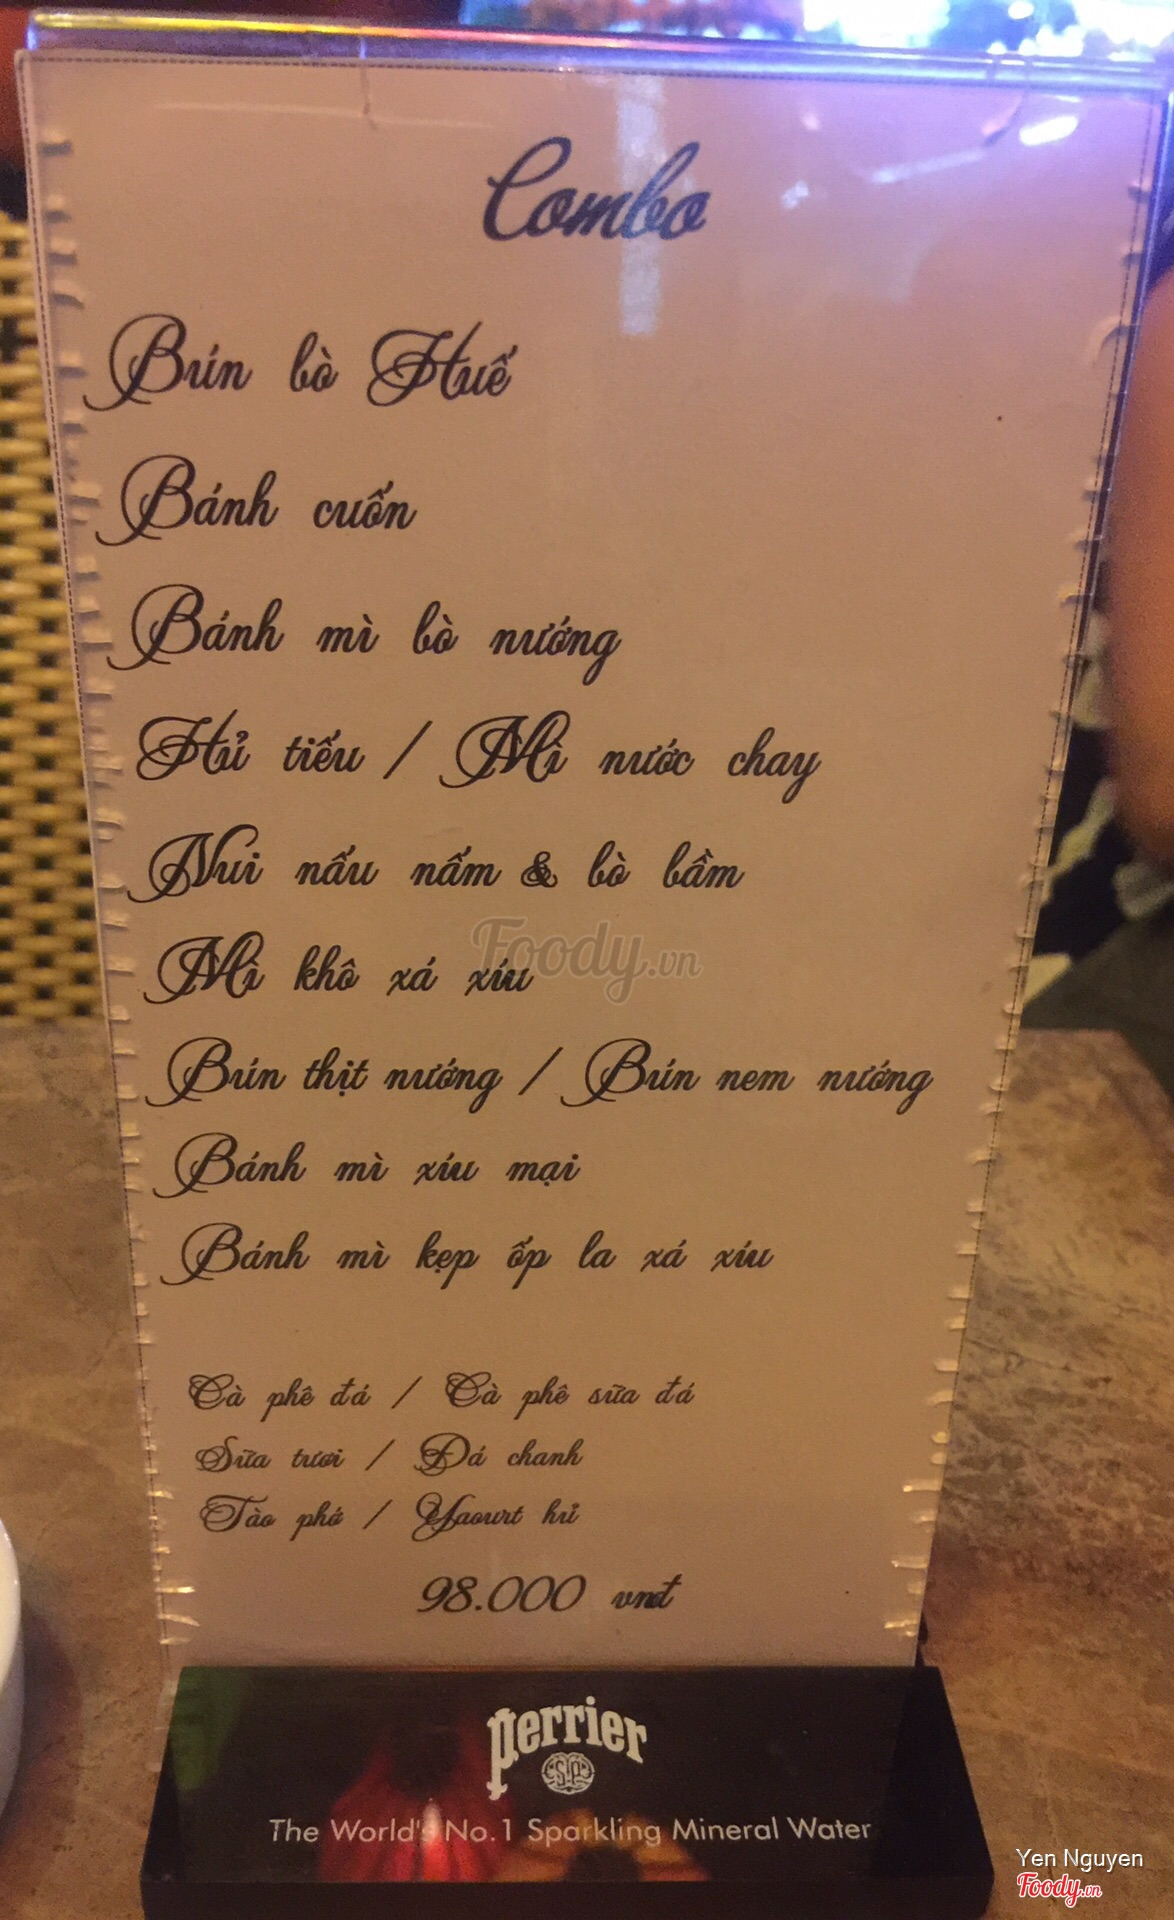 Combo
Bún bò Huế
Bánh cuốn
Bánh mì bò nướng
Hủ tiếu / Mì nước chay
Nui nấu nấm & bò bằm
Foody.vn
Mì khô xá xíu
Bún thịt nướng / Bún nem nướng
Bánh mì xíu mại
Bánh mì kẹp ốp la xá xíu
Cà phê đá / Cà phê sữa đá
Sữa tươi / Đá chanh
Tào phớ / Yaourt hủ
98.000 vnđ
perrier
S.P.
The World's No.1 Sparkling Mineral Water
Yen Nguyen
Foody.vn